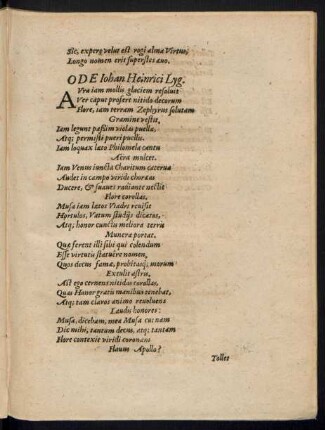 Sic, expersq; velut est rogi alma Virtus,
Longo nomen erit superstes æuo.
ODE Iohan Heinrici Lyg.
AVra iam mollis glaciem resoluit
Ver caput profert nitido decorum
Flore, iam terram Zephyrus solutam
Gramine vestit,
Iam legunt passim violas puellæ,
Atq; permisti pueri puellis.
Iam loquax lato Philomela cantu
Aëra mulcet.
Iam Venus iuncta Charitum caterua
Audet in campo viridi choream
Ducere, & suaues radiante nectit
Flore corollas,
Musa iam lætos Viadri reuisit
Hortulos, Vatum studijs dicatos,
Atq; honor cunctis meliora terris
Munera portat,
Quæ ferent illi sibi qui colendum
Esse virtutis statuêre numen,
Quos decus famæ, probitasq; morum
Extulit astris,
Ast ego cernens nitidas corollas,
Quas Honor gratis manibus tenebat,
Atq; tam claros animo reuoluens
Laudis honores:
Musa, dicebam, mea Musa cui nam
Dic mihi, tantum decus, atq; tantam
Flore contexit viridi coronam
Flauus Apollo?
Tolles